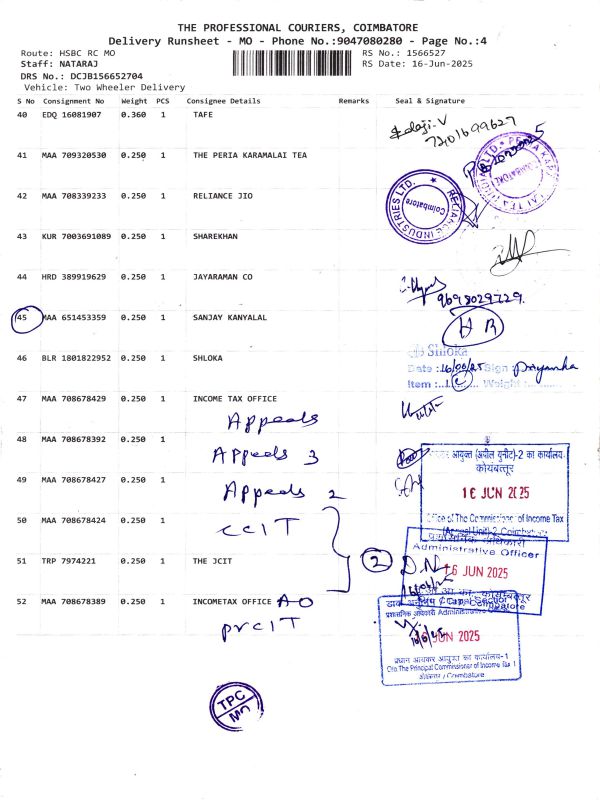 THE PROFESSIONAL COURIERS, COIMBATORE
Delivery Runsheet - MO - Phone No.:9047080280 - Page No.:4
Route: HSBC RC MO
RS No.: 1566527
Staff: NATARAJ
RS Date: 16-Jun-2025
DRS No.: DCJB156652704
Vehicle: Two Wheeler Delivery
S No Consignment No Weight PCS Consignee Details Remarks Seal & Signature
40 EDQ 16081907 0.360 1 TAFE
41 MAA 709320530 0.250 1 THE PERIA KARAMALAI TEA
42 MAA 708339233 0.250 1 RELIANCE JIO
RELIANCE INDUSTRIES LTD.
Coimbatore
43 KUR 7003691089 0.250 1 SHAREKHAN
44 HRD 389919629 0.250 1 JAYARAMAN CO
9698029729.
45 MAA 651453359 0.250 1 SANJAY KANYALAL
HR
46 BLR 1801822952 0.250 1 SHLOKA
Shloka
Date :16/06/25 Sign : Priyanka
Item : Weight :
47 MAA 708678429 0.250 1 INCOME TAX OFFICE
Appeals
48 MAA 708678392 0.250 1
Appeals 3
आयुक्त (अपील यूनिट)-2 का कार्यालय
कोयंबत्तूर
49 MAA 708678427 0.250 1
Appeals 2
16 JUN 2025
50 MAA 708678424 0.250 1
CCIT
Office of The Commissioner of Income Tax
(Appeal Unit)-2, Coimbatore
प्रशासनिक अधिकारी
Administrative Officer
51 TRP 7974221 0.250 1 THE JCIT
2
16 JUN 2025
52 MAA 708678389 0.250 1 INCOMETAX OFFICE AO
PrCIT
16 JUN 2025
प्रधान आयकर आयुक्त का कार्यालय-1
O/o The Principal Commissioner of Income Tax 1
कोयंबत्तूर / Coimbatore
TPC
MO